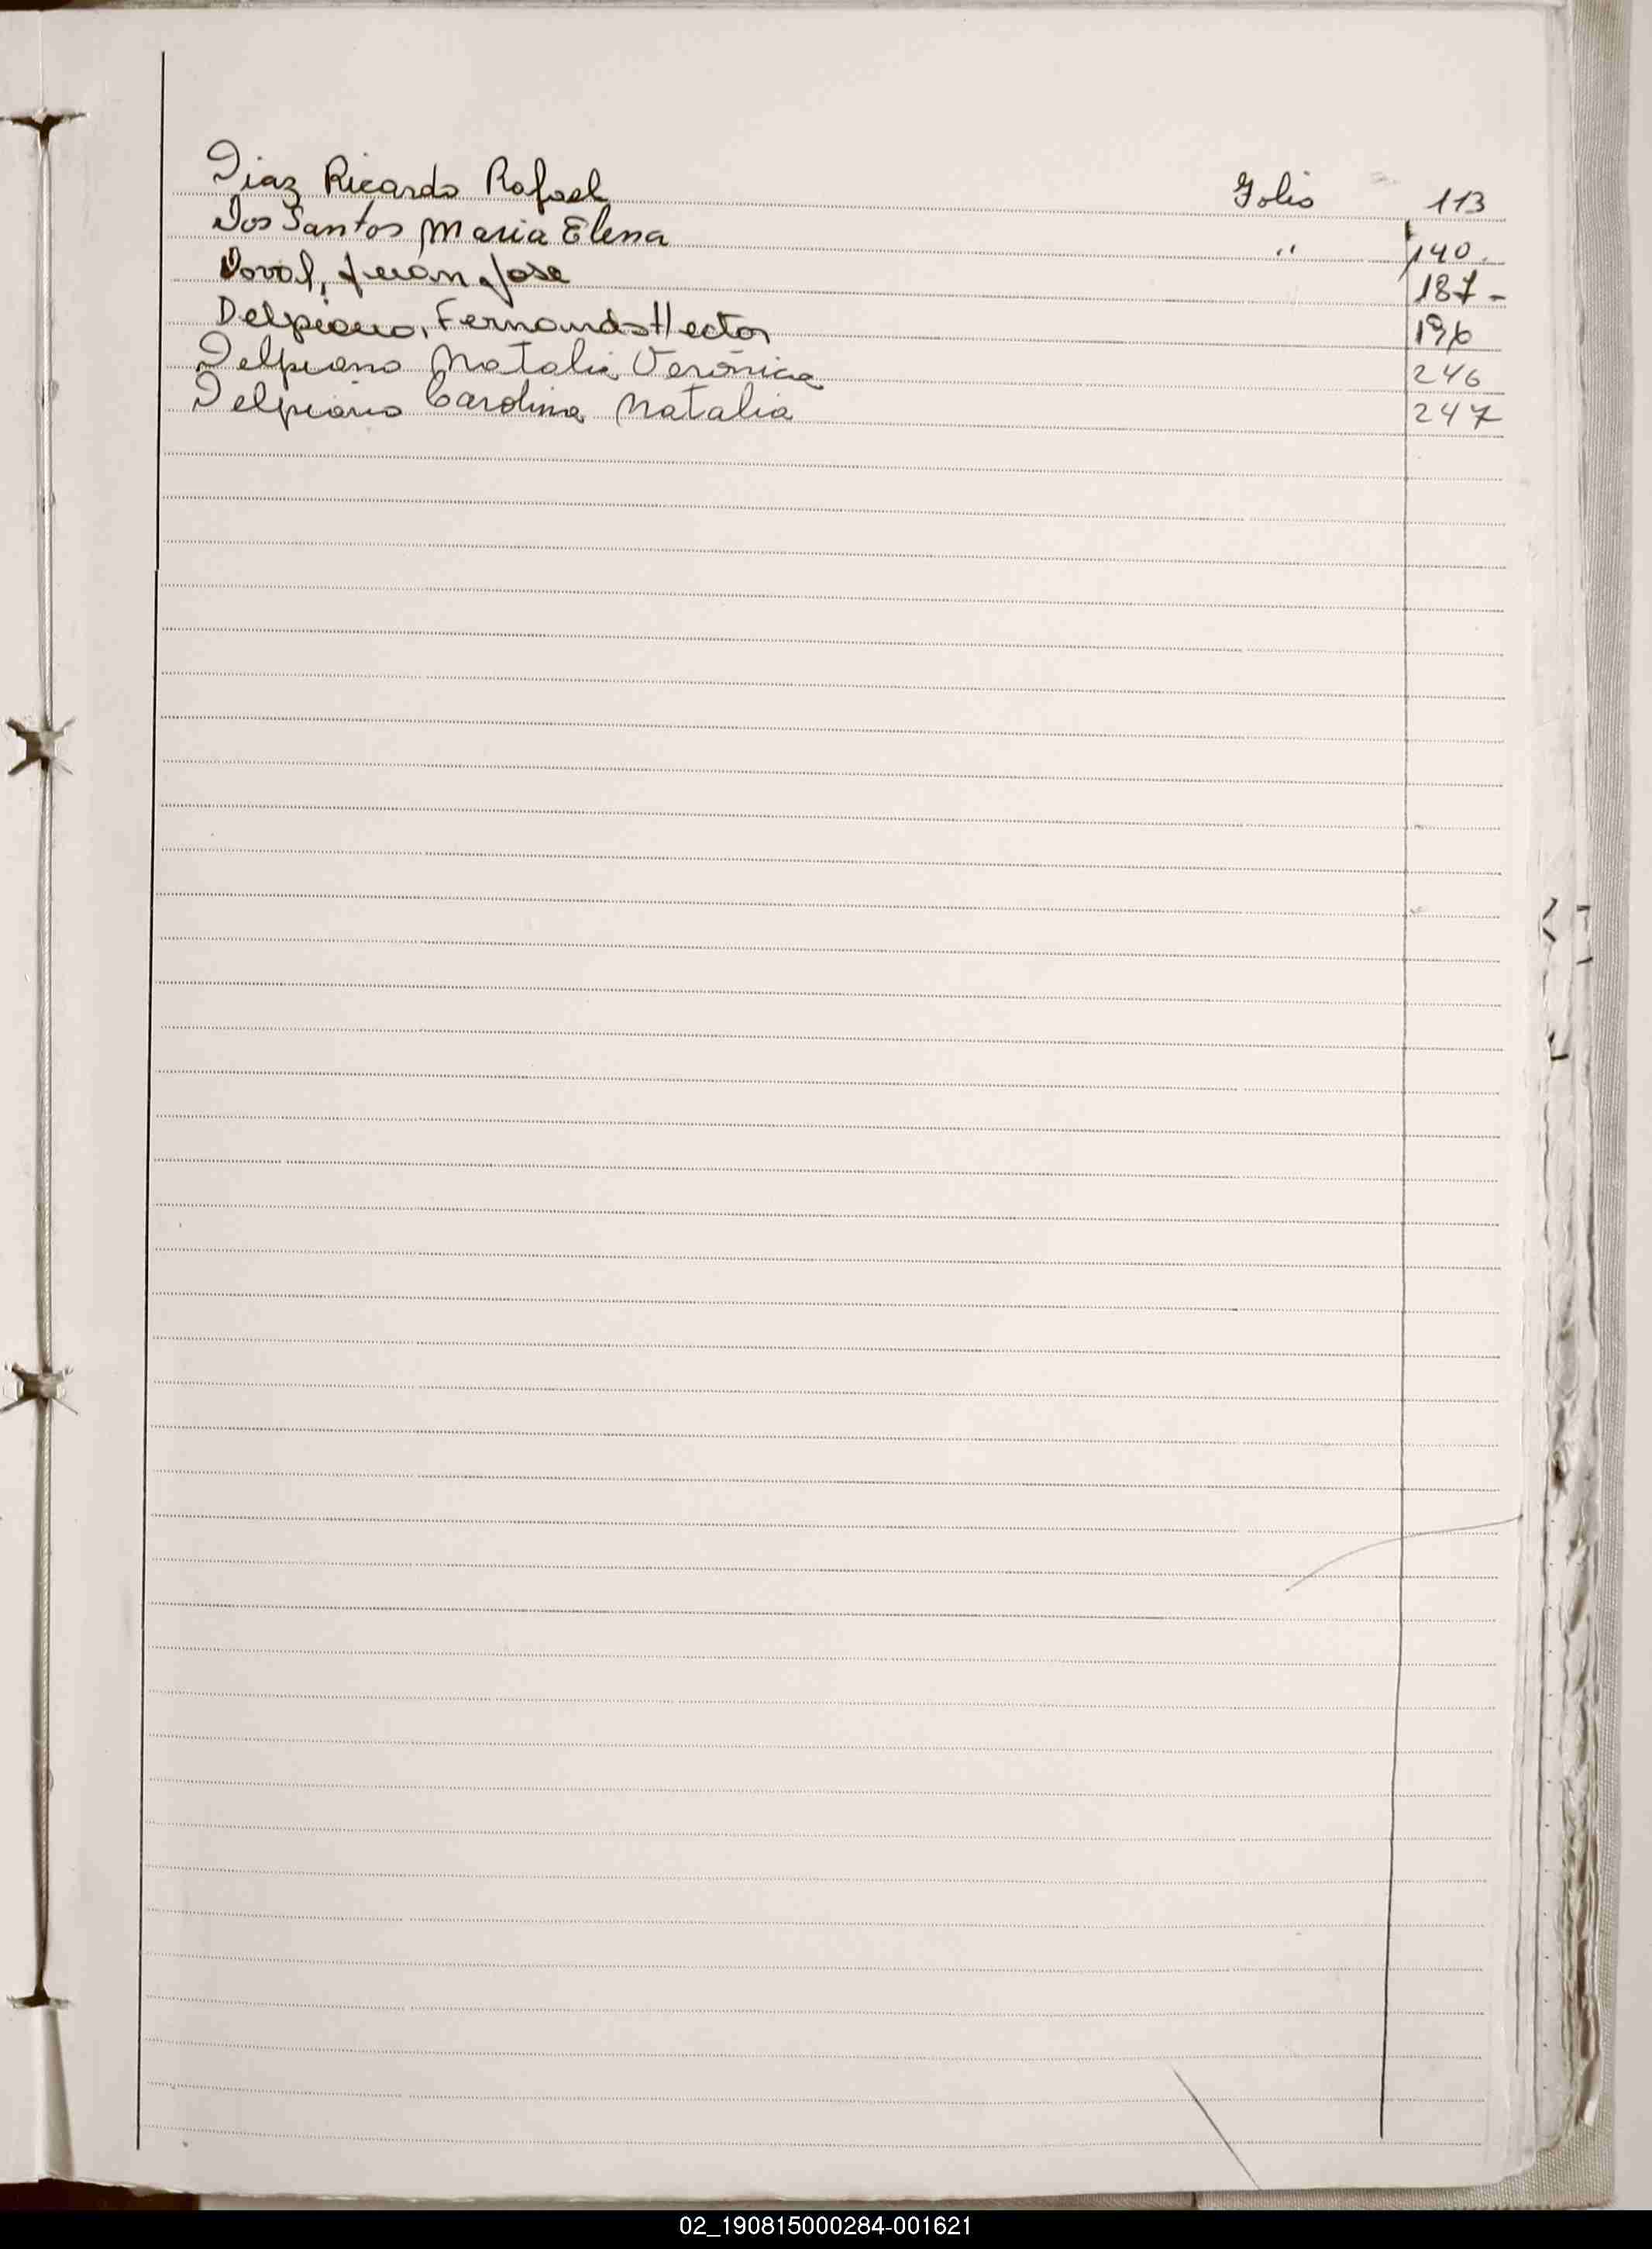 Diaz Ricardo Rafael Folio 113
Dos Santos Maria Elena " 140.
Doval, Juan Jose 187-
Delpiano, Fernando Hector 196
Delpiano Natalia Verónica 246
Delpiano Carolina Natalia 247
02_190815000284-001621